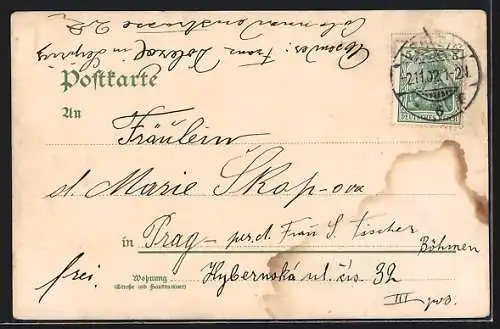 Absender: Franz Doležal in Leipzig
Postkarte
An
Fräulein
d. Marie Škop-ova
in Prag - per. d. Frau S. Fischer
Böhmen
frei.
Wohnung
(Straße und Hausnummer)
Hybernská ul. čis. 32
III
2.11.02. 1-2N.